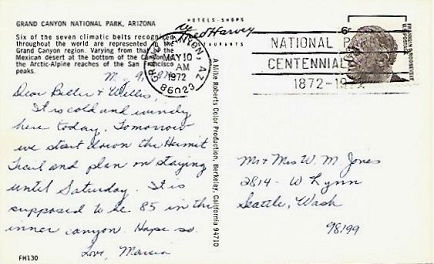 GRAND CANYON NATIONAL PARK, ARIZONA
Six of the seven climatic belts recognized
throughout the world are represented in the
Grand Canyon region. Varying from that of the
Mexican desert at the bottom of the Canyon to
the Arctic-Alpine reaches of the San Francisco
peaks.
HOTELS · SHOPS
Fred Harvey
RESTAURANTS
GRAND CANYON, AZ
MAY 10
AM
1972
86023
NATIONAL PARKS
CENTENNIAL
1872-1972
6c
May 9,
Dear & Willis,
It is cold and windy
here today. Tomorrow
we start down the Hermit
Trail and plan on staying
until Saturday. It is
supposed to be 85 in the
inner canyon. Hope so.
Love, Marcia
FH130
A Mike Roberts Color Production, Berkeley, California 94710
Mr & Mrs W. M. Jones
2814 - W Lynn
Seattle, Wash
98199